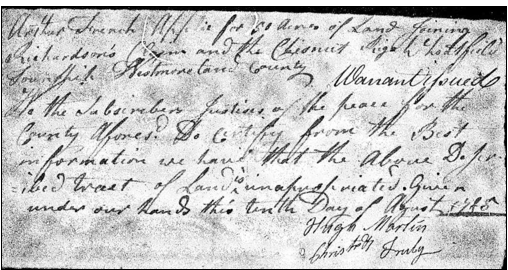 Arthur French Applic for 50 Acres of Land Joining
Richardson's Claim and the Chesnut Ridge
Township Westmoreland County
Warrant Issued
We the Subscribers Justices of the peace for the
County Afores.d Do Certify from the Best
information we have that the Above Descr
=ibed tract of Land is unapropriated. Given
under our hands this tenth Day of Agust 1785
Hugh Martin
Christr Truby